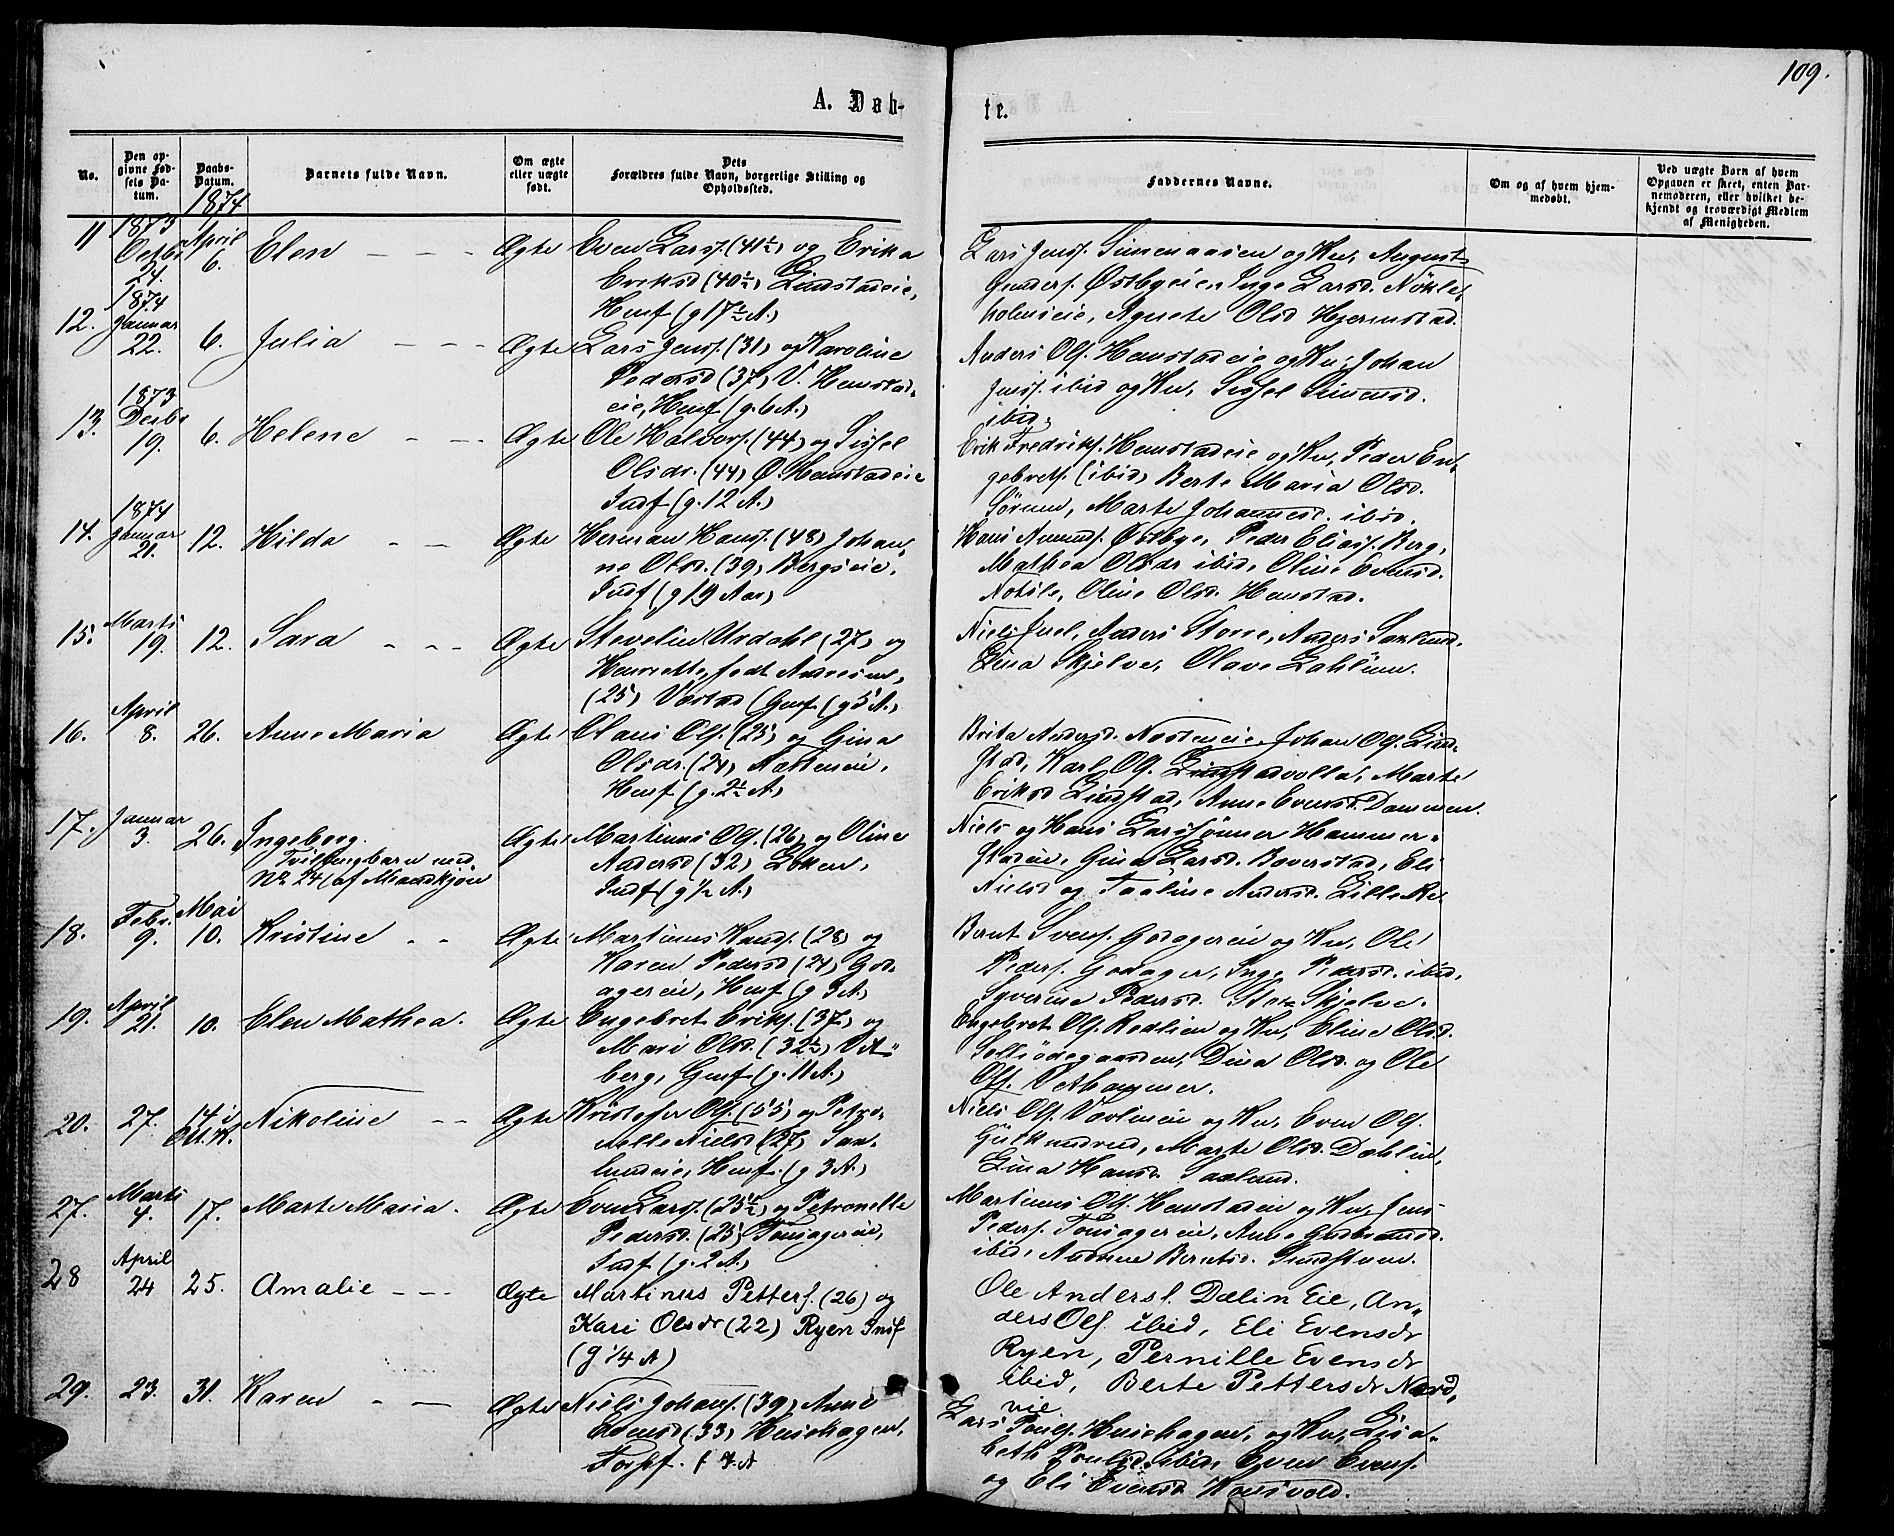 109.
A. Døb-
te.
No.
Den op-
givne Fød-
sels Da-
tum.
Daabs-
Datum.
Barnets fulde Navn.
Om ægte
eller uægte
født.
Dets
Forældres fulde Navn, borgerlige Stilling og
Opholdssted.
Faddernes Navne.
Om og af hvem hjem-
medøbt.
Ved uægte Børn af hvem
Opgaven er skeet, enten Bar-
nemoderen, eller hvilket be-
kjendt og troværdigt Medlem
af Menigheden.
1874
11
1873
Octbr
24.
April
6.
Elen
Ægte
Even Larss. (41½) og Erika
Eriksd (40½) Lindstadeie,
Husf (g 17½ A.)
Lars Jenss. Simenaasen og Ku, August
Gunders. Østbyeie, Inge Larsd. Nökle
holmseie, Agnete Olsd Hjermstad.
12.
1874
Januar
22.
6.
Julia
Ægte
Lars Jenss. (31) og Karoline
Pedersd (37) V. Hemstad-
eie, Husf (g. 6 A.)
Anders Ols. Hemstadeie og Ku, Johan
Jenss. ibid og Ku, Sissel Simensd.
ibid.
13.
1873
Decbr
19.
6.
Helene
Ægte
Ole Halvors. (44) og Sissel
Olsdr. (44) Ø. Hemstadeie
Indf (g. 12 A.)
Erik Fredriks. Hemstadeie og Ku, Peder En-
gebrets. (ibid) Berte Maria Olsd.
Sörum, Marte Johannesd. ibid.
14.
1874
Januar
21.
12.
Hilda
Ægte
Herman Hanss. (48) Johan-
ne Olsd. (39) Bergseie,
Indf (g 19 Aar)
Hans Amunds. Østbye, Peder Elias. Berg,
Mathea Olsdr ibid, Oline Evensd.
Oline Olsd. Hemstad.
15.
Marts
19.
12.
Sara
Ægte
Stevelin Urdahl (27) og
Henriette, født Andresen,
(25) Vestad (Gmf (g 5 A.)
Niels Juel, Anders Storre, Anders Saxlund.
Lina Skjelve, Olave Dahlum.
16.
April
8.
26.
Anne Maria
Ægte
Olaus Ols. (25) og Gina
Olsdr. (24) Næstenseie,
Husf (g. 2½ A.)
Brita Andersd. Johan Ols. Lind-
stad, Karl Ols. Lindstadvolla, Marte
Eriksd Lindstad, Anne Evensd. Dammen.
17.
Januar
3.
26.
Ingeborg.
Tvillingbarn med
No 24 (af Mandkjøn
Ægte
Martinus Ols. (26) og Oline
Andersd (32) Løken,
Indf (g ½ A.)
Niels og Hans Larssønner Hammer-
stadeie, Gina Larsd. Baverstad, Eli
Nielsd og Pauline Andersd. Lille Re
18.
Febr.
9.
Mai
10.
Kristine
Ægte
Martinus Hanss. (28) og
Karen Pedersd (24) God-
agereie, Husf (g 3 A.)
Bernt Svens. Godagereie og Ku, Ole
Peders. Godager, Inge Pedersd. ibid,
Syverine Pedersd. Store Skjelve.
19.
April
21.
10.
Elen Mathea.
Ægte
Engebret Eriks. (37) og
Mari Olsd. (32½) Vet-
berg, Gmf (g. 11 A.)
Engebret Ols. Rødlien og Ku, Eline Olsd.
Dina Olsd. og Ole
Ols. Vethammer.
20.
27.
14 i
Ott. K.
Nikoline
Ægte
Kristoffer Ols. (55) og Petro-
nelle Nielsd (27) Sax-
lundeie, Husf. (g 3 A.)
Niels Ols. og Ku, Even Ols.
Gulknudrud, Marte Olsd. Dæhlin,
Lina Hansd. Saxlund.
27.
Marts
4.
17.
Marte Maria.
Ægte
Even Larss. (25½) og Petronelle
Pedersd. (25) Tomsagereie,
Indf (g. 2 A.)
Martinus Ols. Hemstadeie og Ku, Jens
Peders. Tomsagereie, Anne Gudbrandsd.
ibid, Andrine Berntsd. Sundstuen.
28
April
24
25.
Amalie
Ægte
Martinus Petters. (26) og
Kari Olsdr (22) Ryen Insf
(g ¼ A)
Ole Anders. Dælin Eie, An-
ders Ols. ibid, Eli Evensdr
Ryen, Pernille Evensdr
ibid, Berte Pettersdr Nord-
vie
29.
23.
31.
Karen
Ægte
Niels Johans. (39) Anne
Evensd (33) Husehagen,
Forpf. f 7. A
Lars Pouls. Husehagen, og Ku, Lisa-
beth Poulsd. ibid, Even Evens.
og Eli Evensd Konsvold.